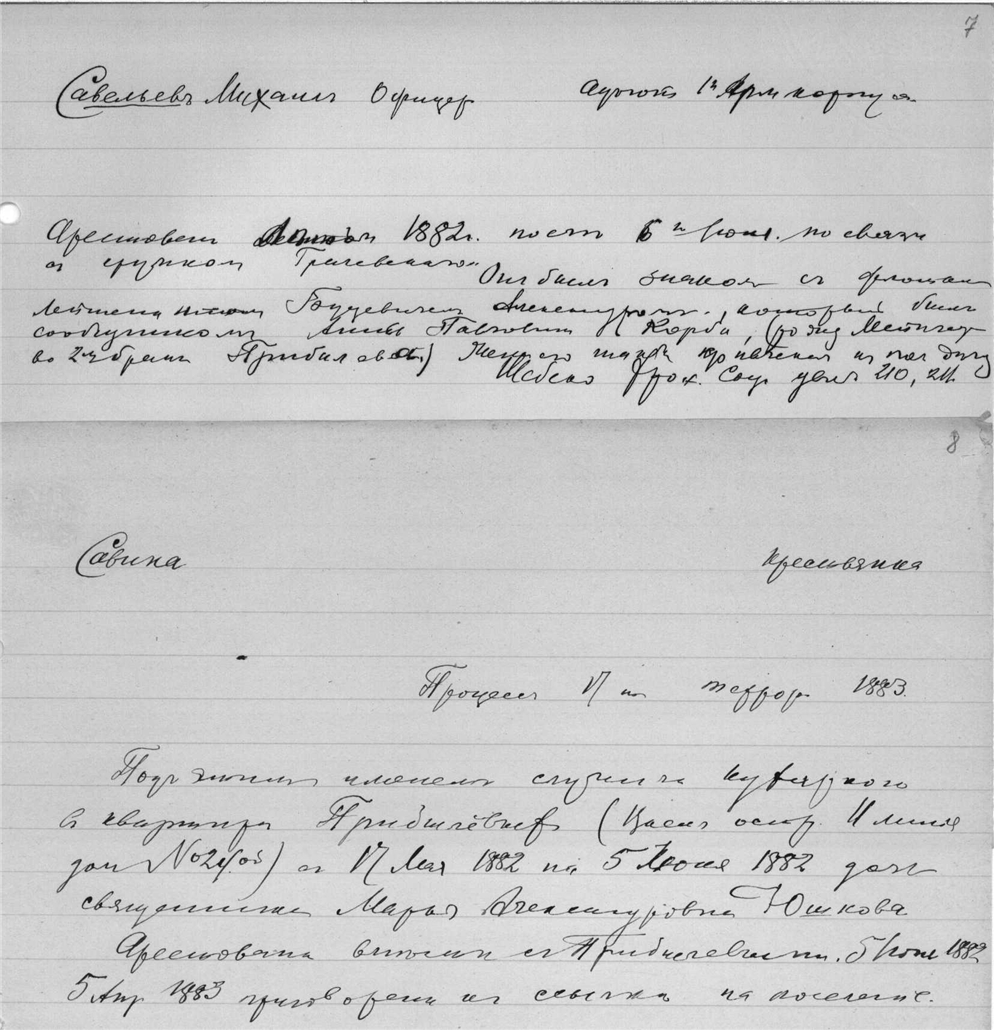 7
Савельевъ Михаилъ Офицер Адъют 1й Арм корпуса
Арестованъ 1882г. после 5го Июня. по связи
съ кружком Грачевскаго. Онъ былъ знаком съ флотским
лейтенантом Буцевичем Александром, который был
сообщником Анны Павловны (Корба, (рожд Мейнгард
во 2м браке Прибылева)
Шебеко Хрон. Соц движ 210, 211.
8
Савина крестьянка
Процесс 17 ти террор 1883.
Подъ этимъ именемъ служила кухаркою
в квартире Прибылёвых (Васил остр. 11 линия
дом No 24/05) съ 17 Мая 1882 по 5 Июня 1882 дочь
священника Марья Александровна Юшкова
Арестована вместе съ Прибылевыми. 5 Июня 1882
5 Апр 1883 приговорена къ ссылке на поселение.